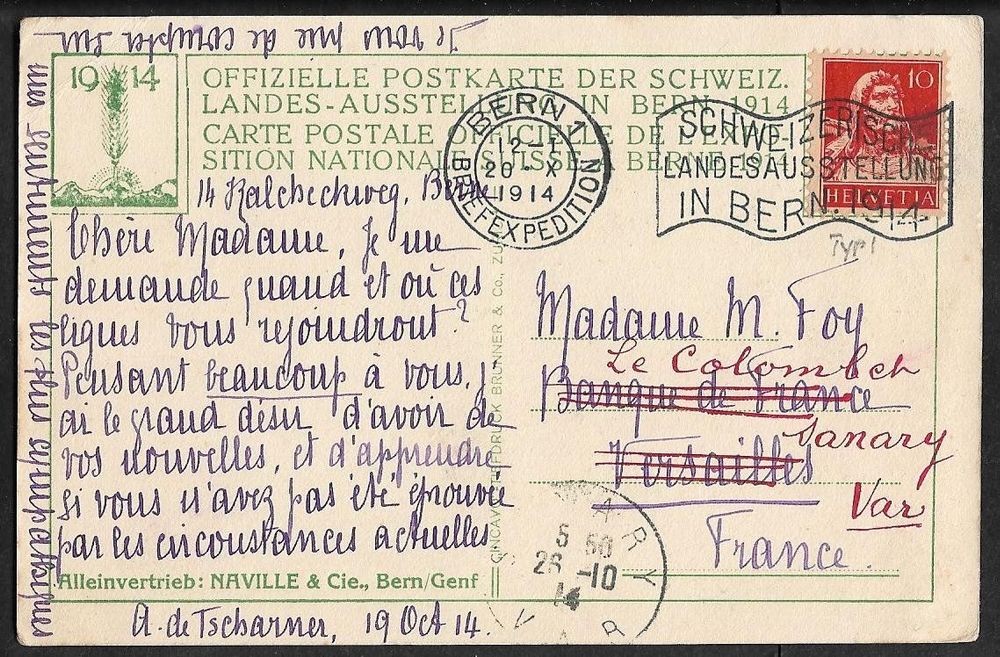 Je vous prie de compter sur
mes sentiments les plus sympathiques
1914
OFFIZIELLE POSTKARTE DER SCHWEIZ.
LANDES-AUSSTELLUNG IN BERN 1914
CARTE POSTALE OFFICIELLE DE L'EXPO-
SITION NATIONALE SUISSE A BERNE 1914
BERN 1
12-1
20·X
1914
BRIEFEXPEDITION
SCHWEIZERISCHE
LANDESAUSSTELLUNG
IN BERN. 1914
10
HELVETIA
Typ I
14 Kalcheckweg, Berne
Chère Madame, Je me
demande quand et où ces
lignes vous rejoindront?
Pensant beaucoup à vous, j'
ai le grand désir d'avoir de
vos nouvelles, et d'apprendre
si vous n'avez pas été éprouvée
par les circonstances actuelles
Alleinvertrieb: NAVILLE & Cie., Bern/Genf
A. de Tscharner, 19 Oct 14.
BRUNNER & Co., ZÜ
Madame M. Foy
Le Colombet
Banque de France
Sanary
Versailles
Var
France
SANARY
5 50
26 -10
14
VAR